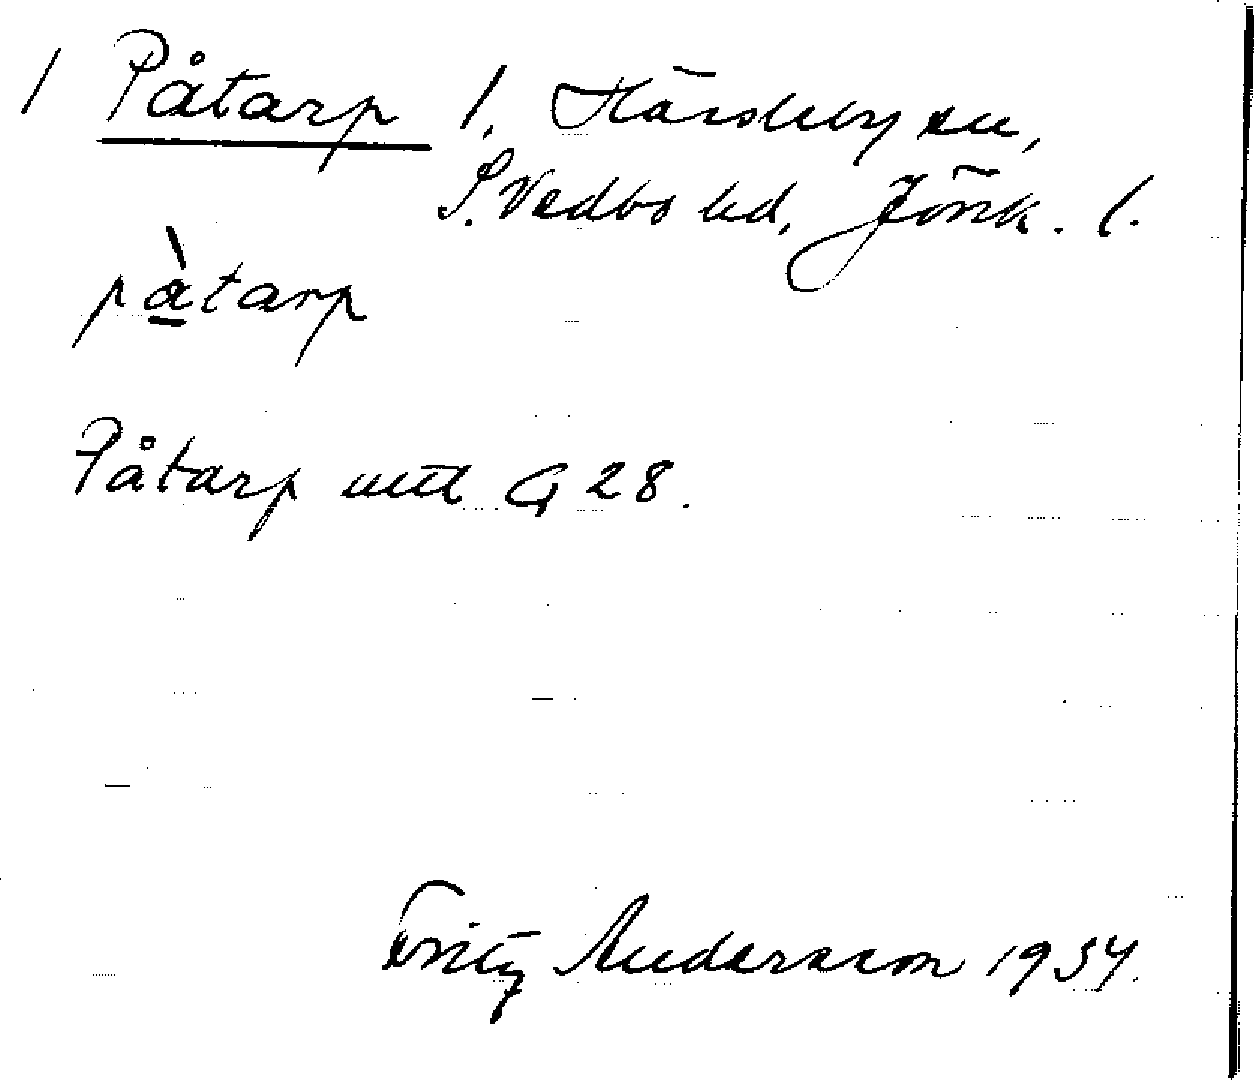 1 Påtarp l, Hässleby sn,
S. Vedbo hd, Jönk. l.
pàtarp
Påtarp mtl G 28.
Fritz Andersson 1934.